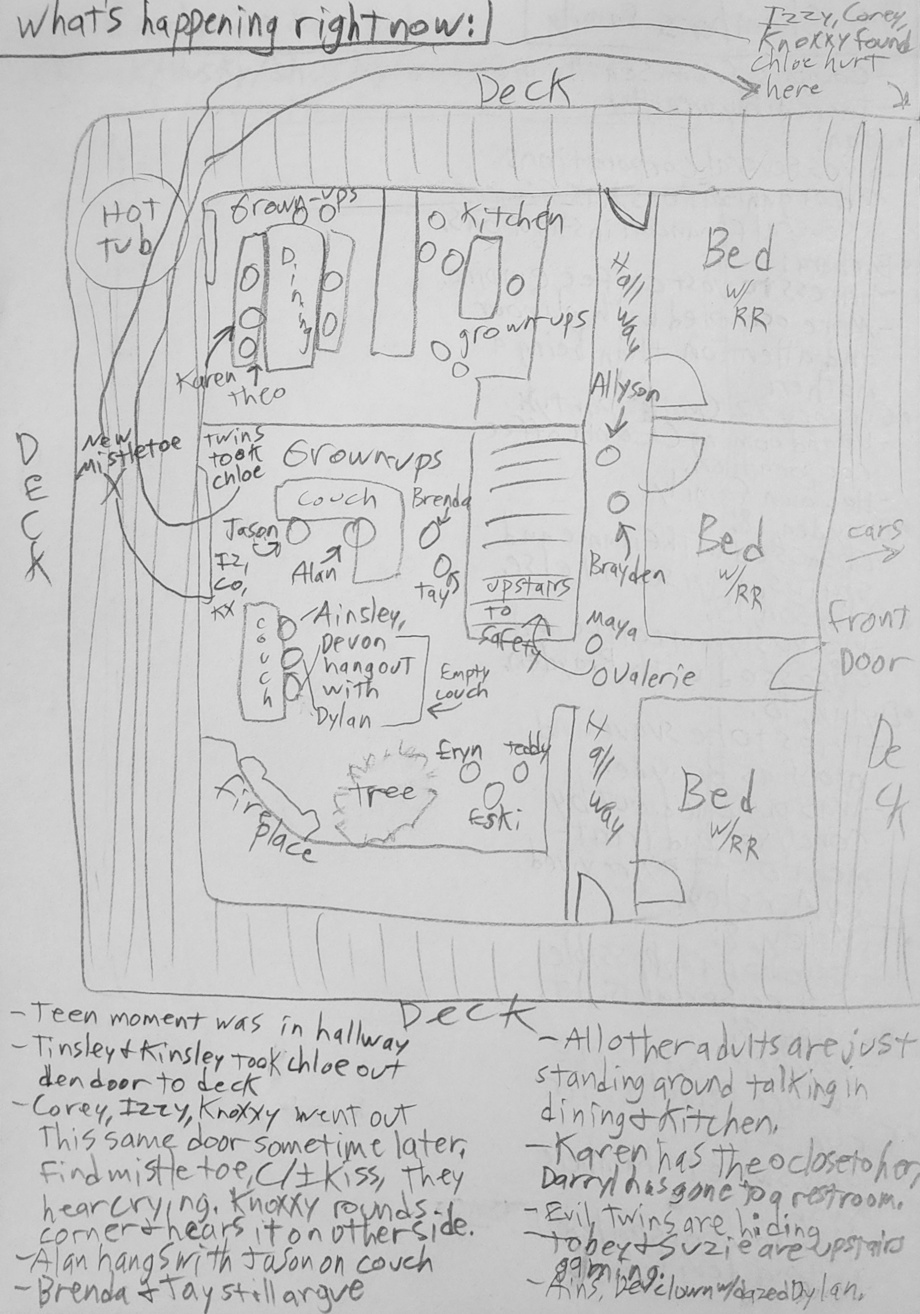 What's happening right now:
Izzy, Corey,
Knoxxy found
Chloe hurt
here
Deck
Hot
tub
Grown-ups
Dining
Kitchen
grown-ups
Hallway
Bed
w/
RR
Karen
Theo
Allyson
DECK
New
Mistletoe
X
twins
took
chloe
Grown-ups
couch
Brenda
Jason
Alan
Tay
Iz,
Co,
KX
upstairs
to
safety
Brayden
Bed
w/
RR
cars
Maya
Valerie
Front
Door
couch
Ainsley,
Devon
hangout
with
Dylan
Empty
couch
Eryn
teddy
Eski
tree
Fireplace
Hallway
Bed
w/
RR
Deck
Deck
- Teen moment was in hallway
- Tinsley & Kinsley took chloe out
den door to deck
- Corey, Izzy, Knoxxy went out
This same door sometime later,
find mistletoe, C/I kiss, they
hear crying. Knoxxy rounds
corner & hears it on other side.
- Alan hangs with Jason on couch
- Brenda & Tay still argue
- All other adults are just
standing around talking in
dining & Kitchen.
- Karen has Theo close to her,
Darryl has gone to a restroom.
- Evil twins are hiding
- Tobey & Suzie are upstairs
gaming.
- Ains, Dev clown w/dazed Dylan.